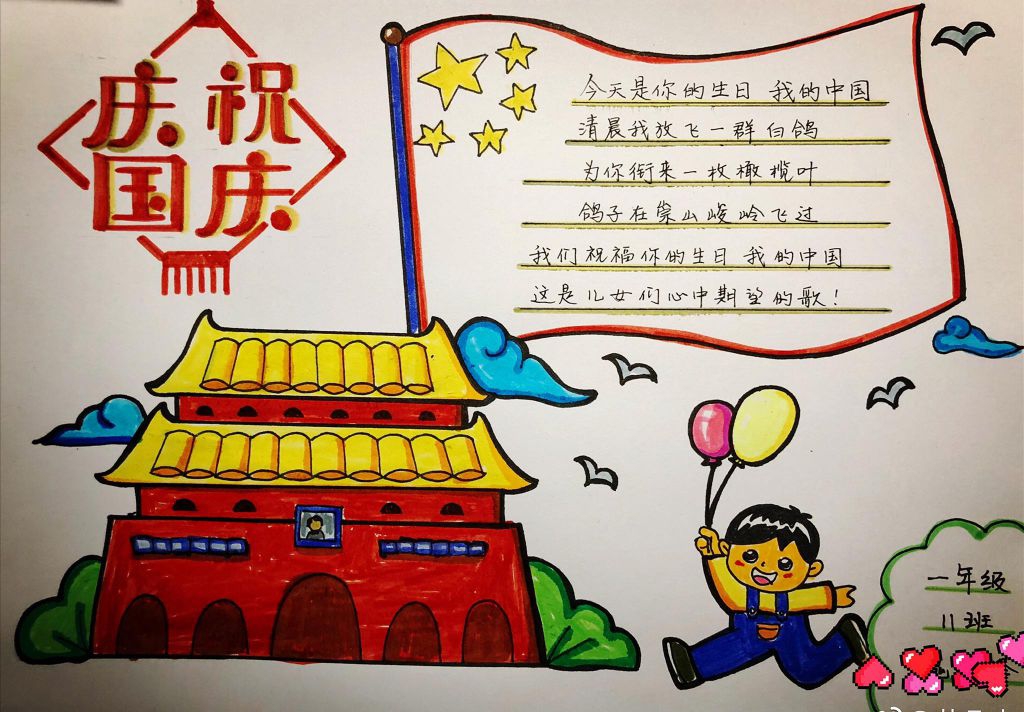 庆祝
国庆
今天是你的生日 我的中国
清晨我放飞一群白鸽
为你衔来一枚橄榄叶
鸽子在崇山峻岭飞过
我们祝福你的生日 我的中国
这是儿女们心中期望的歌!
一年级
11班